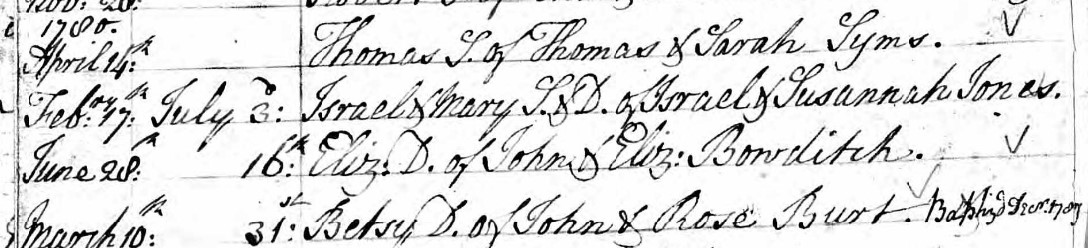 Nov: 28:
1780.
April 14.th Thomas S. of Thomas & Sarah Syms.
Feb:ry 17:th July 3:d Israel & Mary S. & D. of Israel & Susannah Jones.
June 28:th 16:th Eliz: D. of John & Eliz: Bowditch.
March 10:th 31:st Betsy D. of John & Rose Burt. Baptiz'd Decr. 1787